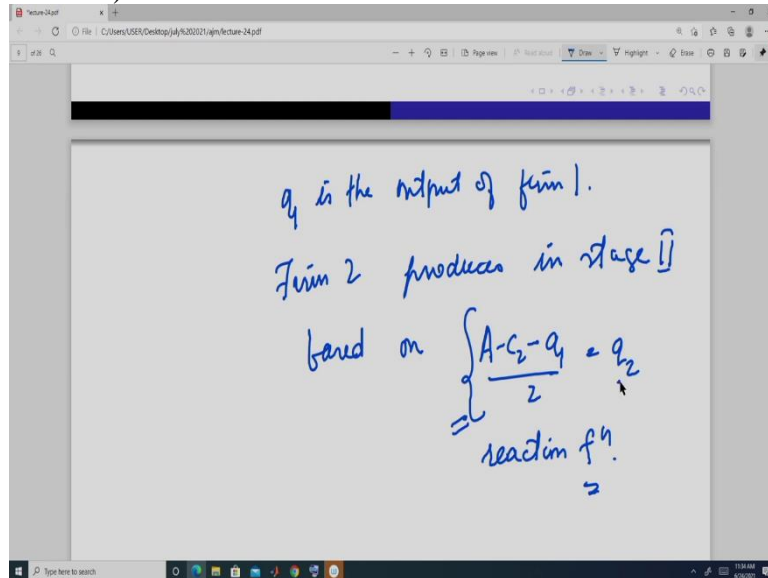 *lecture-24.pdf
File | C:/Users/USER/Desktop/july%202021/ajm/lecture-24.pdf
8 of 26
Page view
Read aloud
Draw
Highlight
Erase
q₁ is the output of firm 1.
Firm 2 produces in stage II
based on { (A-c₂-q₁)/2 = q₂
reaction fⁿ.
Type here to search
11:34 AM
6/26/2021